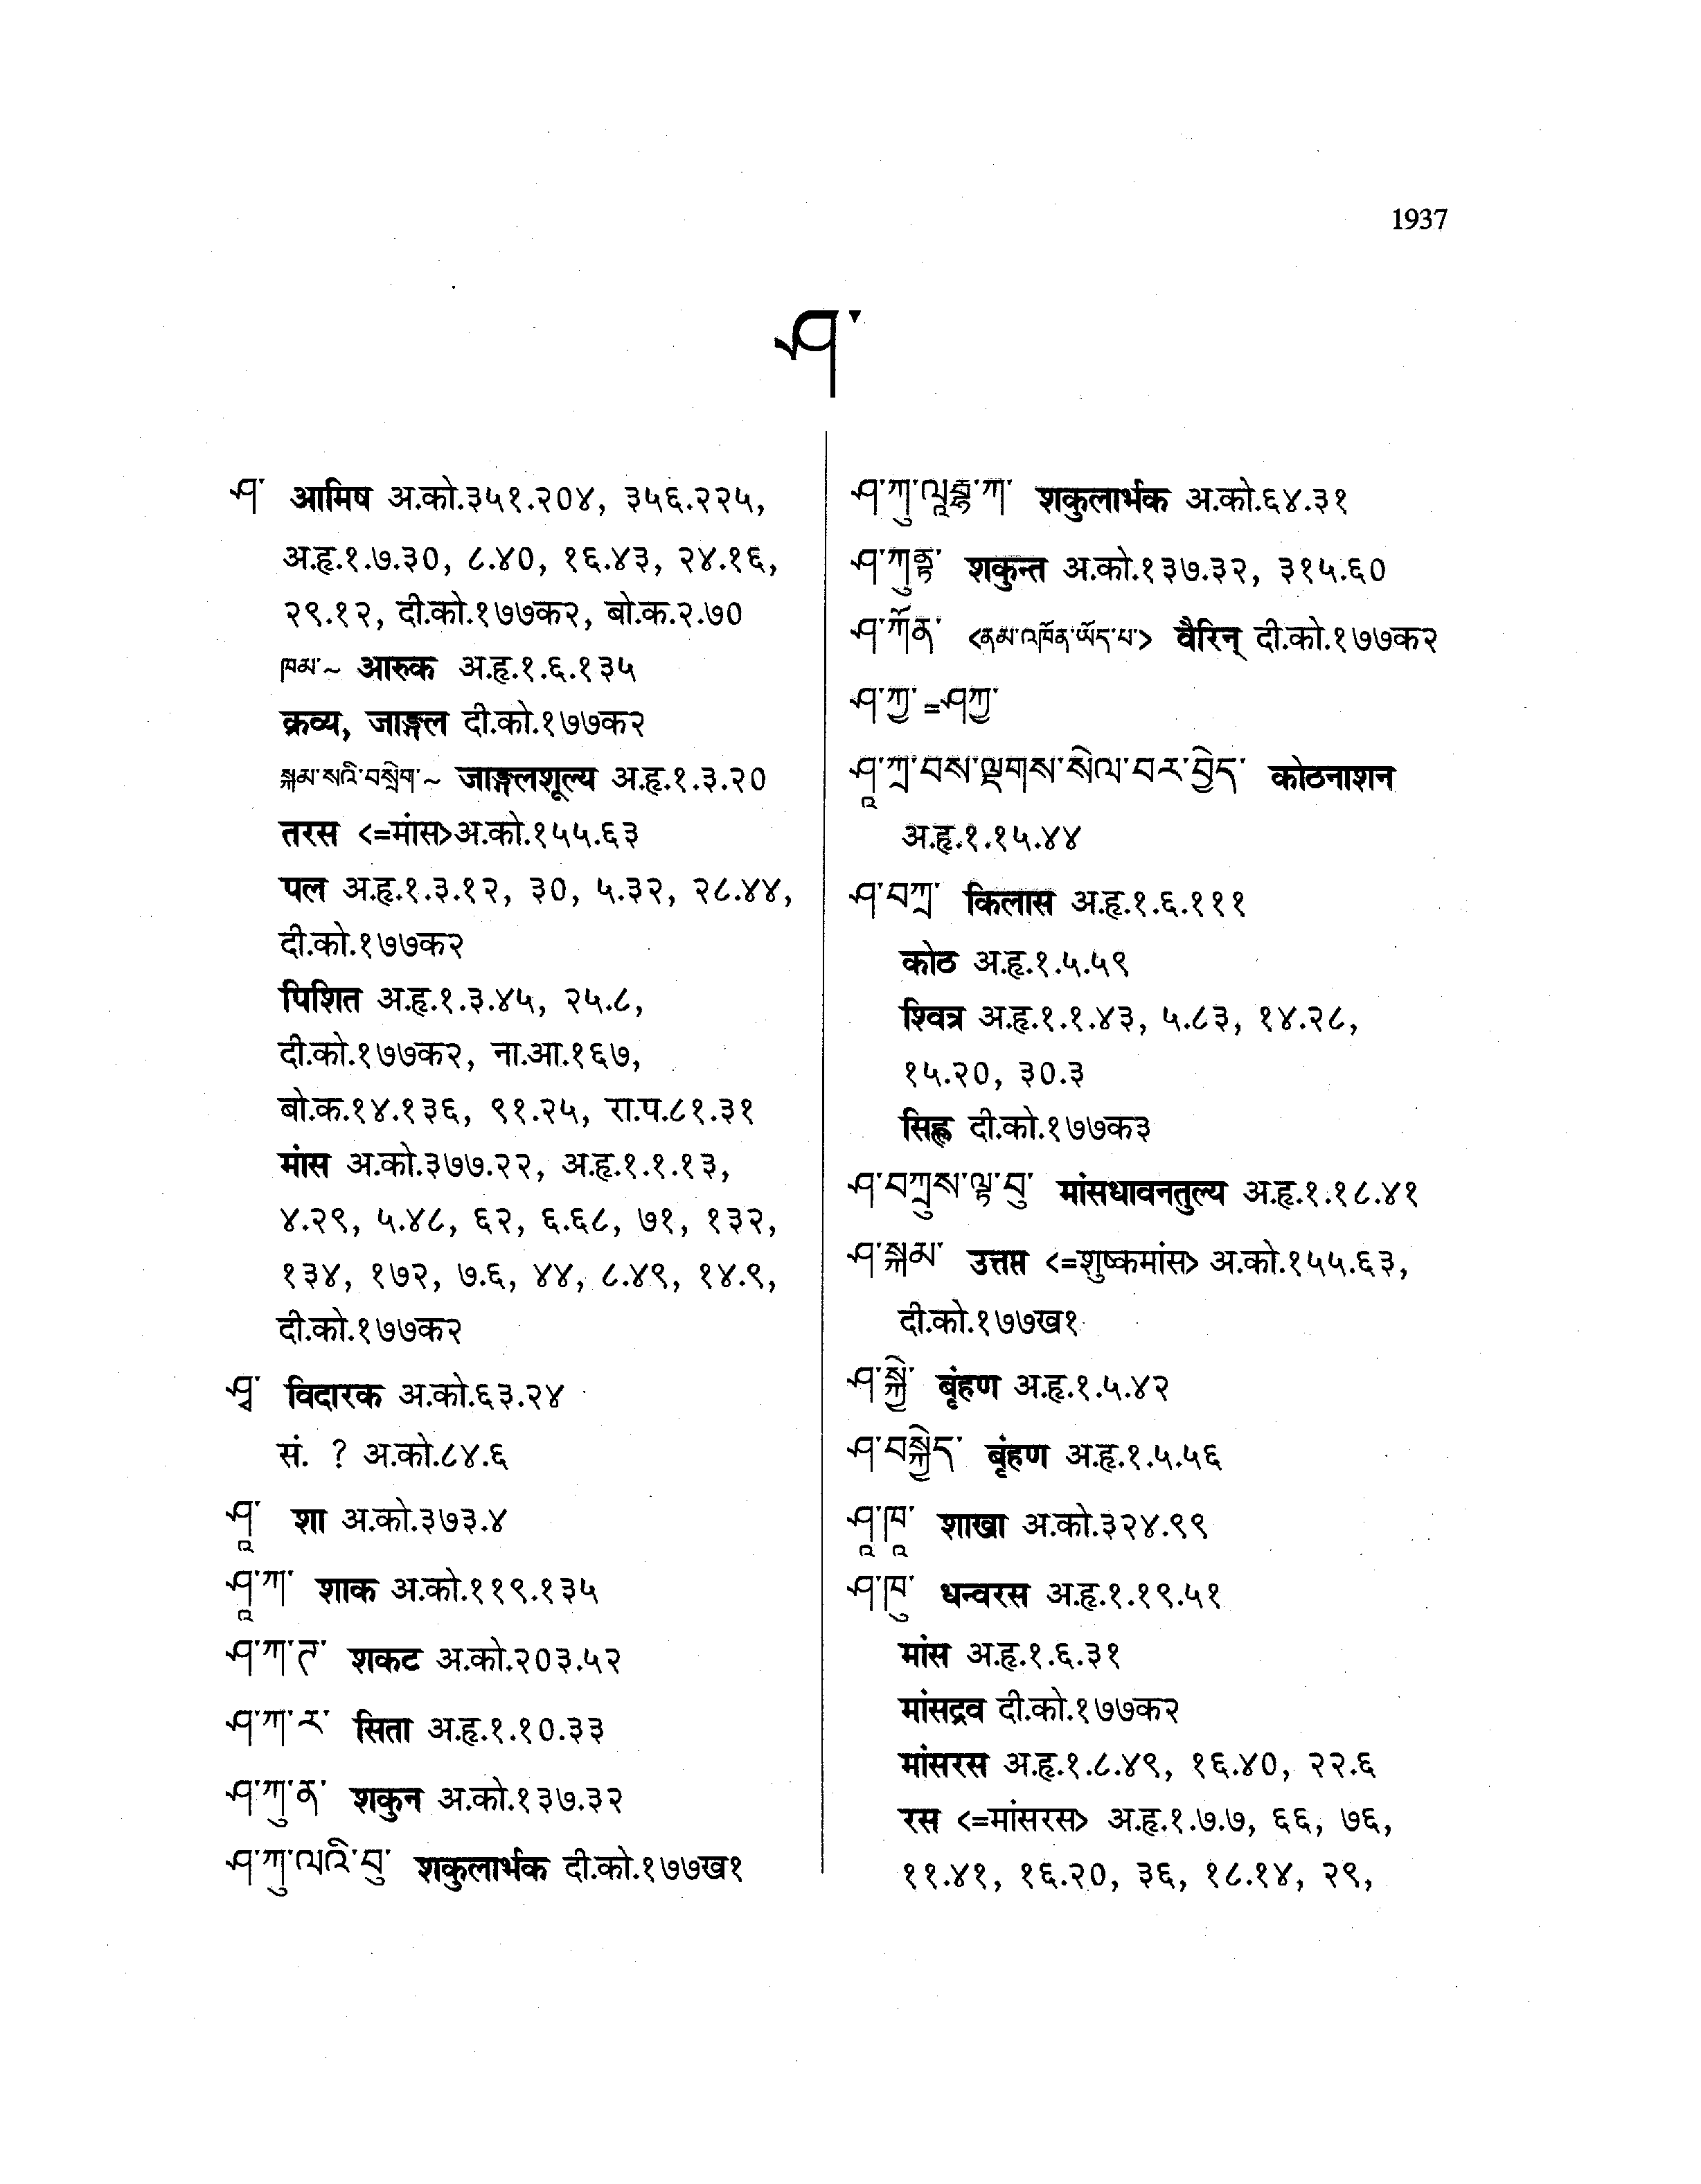 1937
ཤ་
ཤ་ आमिष अ.को.३५१.२०४, ३५६.२२५,
अ.हृ.१.७.३०, ८.४०, १६.४३, २४.१६,
२९.१२, दी.को.१७७क२, बो.क.२.७०
ཁམ་~ आरुक अ.हृ.१.६.१३५
क्रव्य, जाङ्गल दी.को.१७७क२
སྐམ་སའི་བསྲེག་~ जाङ्गलशूल्य अ.हृ.१.३.२०
तरस <=मांस>अ.को.१५५.६३
पल अ.हृ.१.३.१२, ३०, ५.३२, २८.४४,
दी.को.१७७क२
पिशित अ.हृ.१.३.४५, २५.८,
दी.को.१७७क२, ना.आ.१६७,
बो.क.१४.१३६, ९१.२५, रा.प.८१.३१
मांस अ.को.३७७.२२, अ.हृ.१.१.१३,
४.२९, ५.४८, ६२, ६.६८, ७१, १३२,
१३४, १७२, ७.६, ४४, ८.४९, १४.९,
दी.को.१७७क२
विदारक अ.को.६३.२४
सं. ? अ.को.८४.६
ཤཱ་ शा अ.को.३७३.४
ཤཱ་ཀ་ शाक अ.को.११९.१३५
ཤ་ཀ་ཊ་ शकट अ.को.२०३.५२
ཤ་ཀ་ར་ सिता अ.हृ.१.१०.३३
ཤ་ཀུ་ན་ शकुन अ.को.१३७.३२
ཤ་ཀུ་ལའི་བུ་ शकुलार्भक दी.को.१७७ख१
शकुलार्भक अ.को.६४.३१
ཤ་ཀུནྟ་ शकुन्त अ.को.१३७.३२, ३१५.६०
ཤ་ཀོན་ <ནམ་འཁོན་ཡོད་པ་> वैरिन् दी.को.१७७क२
ཤ་ཀྱ་=ཤཀྱ་
ཤཱ་ཀྲ་བས་ལྔགས་སེལ་བར་བྱེད་ कोठनाशन
अ.हृ.१.१५.४४
ཤ་བཀྲ་ किलास अ.हृ.१.६.१११
कोठ अ.हृ.१.५.५९
श्वित्र अ.हृ.१.१.४३, ५.८३, १४.२८,
१५.२०, ३०.३
सिह्ल दी.को.१७७क३
ཤ་བཀྲུས་ལྟ་བུ་ मांसधावनतुल्य अ.हृ.१.१८.४१
ཤ་སྐམ་ उत्तप्त <=शुष्कमांस> अ.को.१५५.६३,
दी.को.१७७ख१
ཤ་སྐྱེ་ बृंहण अ.हृ.१.५.४२
ཤ་བསྐྱེད་ बृंहण अ.हृ.१.५.५६
ཤཱ་ཁཱ་ शाखा अ.को.३२४.९९
ཤ་ཁུ་ धन्वरस अ.हृ.१.१९.५१
मांस अ.हृ.१.६.३१
मांसद्रव दी.को.१७७क२
मांसरस अ.हृ.१.८.४९, १६.४०, २२.६
रस <=मांसरस> अ.हृ.१.७.७, ६६, ७६,
११.४१, १६.२०, ३६, १८.१४, २९,